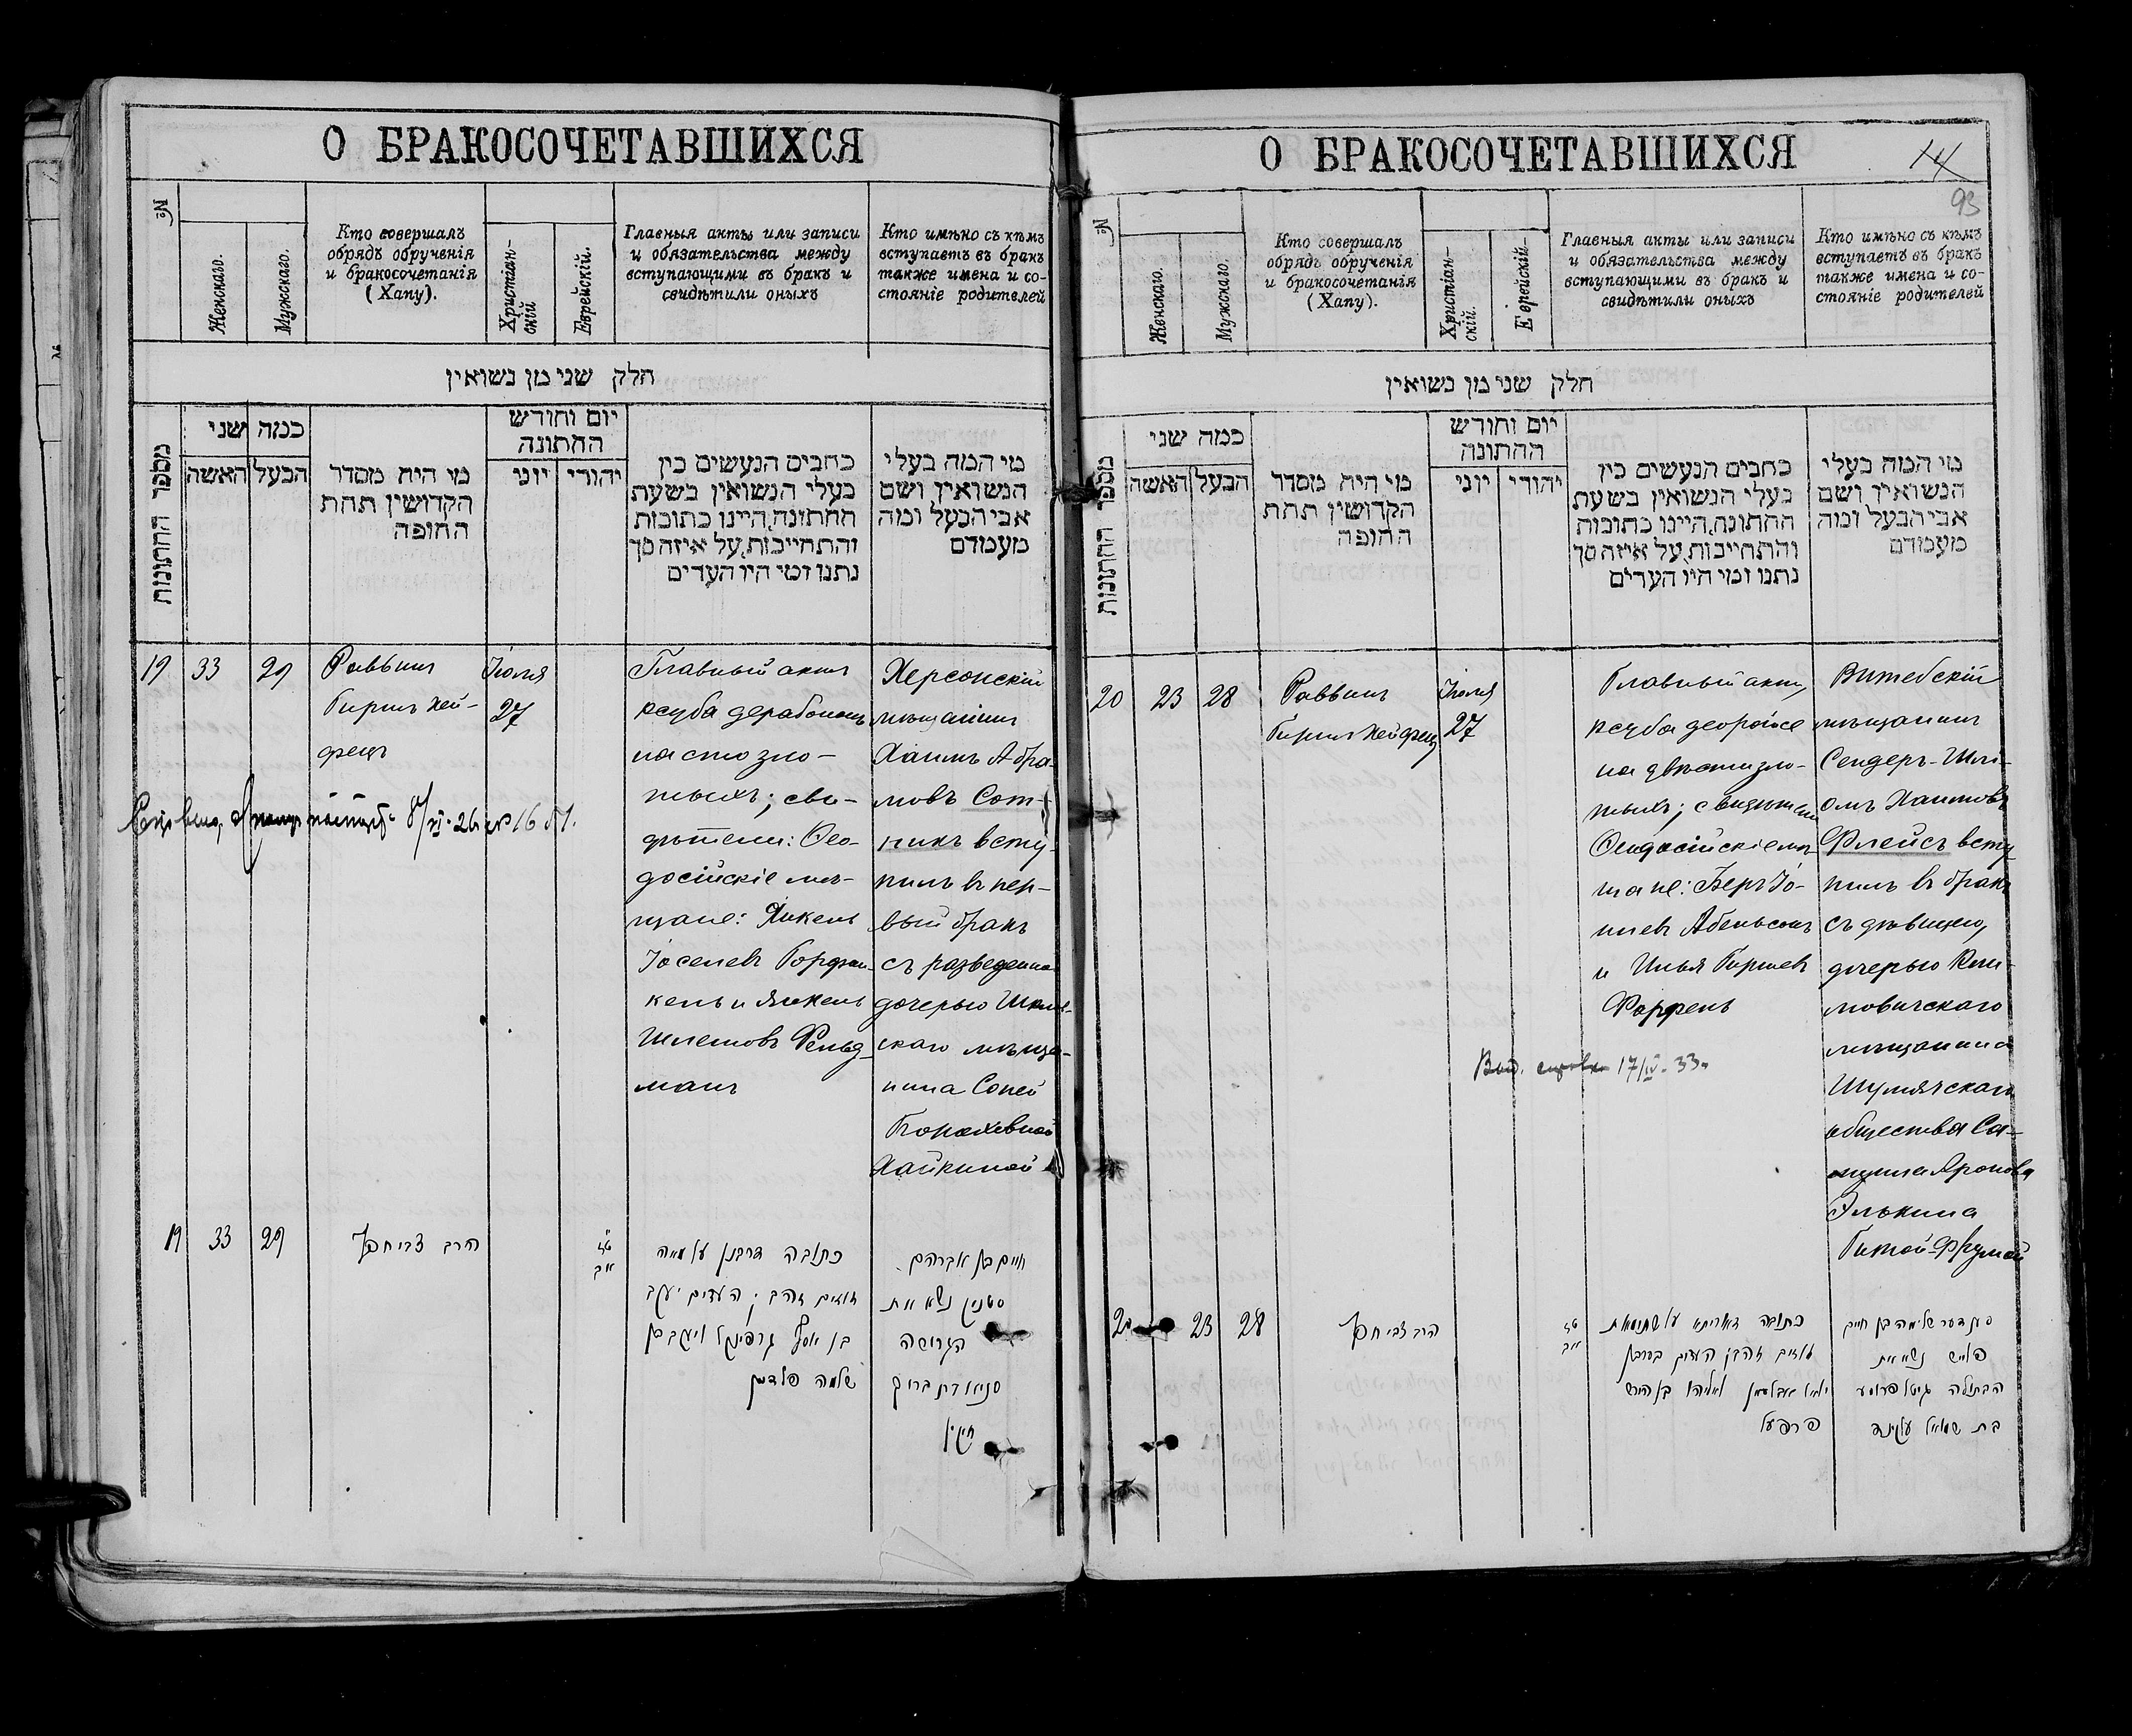 О БРАКОСОЧЕТАВШИХСЯ
№
Женскаго.
Мужскаго.
Кто совершалъ
обрядъ обрученія
и бракосочетанія
(Хапу).
Христіан-
скій
Еврейскій.
Главныя акты или записи
и обязательства между
вступающими въ бракъ и
свидѣтили оныхъ
Кто имѣно съ кѣмъ
вступаетъ въ бракъ
также имена и со-
стояніе родителей
חלק שני מן נשואין
מספר החתונות
כמה שני
האשה
הבעל
מי היה מסדר
הקדושין תחת
החופה
יום וחודש
החתונה
יוני
יהודי
כתבים הנעשים בין
בעלי הנשואין בשעת
החתונה, היינו כתובות
והתחייבות, על איזה סך
נתנו ומי היו העדים
מי המה בעלי
הנשואין ושם
אבי הבעל ומה
מעמדם
19
33
29
Раввинъ
Гиршъ Хей-
фецъ
Іюля
27
Главный актъ
ксуба дерабононъ
на сто зло-
тыхъ; сви-
дѣтели: Ѳео-
досійскіе мѣ-
щане: Янкель
Іоселевъ Горфин-
кель и Янкель
Шлемовъ Фельд-
манъ
Херсонскій
мѣщанинъ
Хаимъ Абра-
мовъ Сот-
никъ всту-
пилъ въ пер-
вый бракъ
съ разведенной
дочерью Шклов-
скаго мѣща-
нина Соней
Бораховной
Хайкиной
19
33
29
הרב צבי חפץ
טז
אב
כתובה דרבנן על מאה
זהובים זהב; העדים יעקב
בן יוסף גרפינקל ויעקב בן
שלמה פלדמן
חיים בן אברהם
סטניק נשא את
הגרושה
ברוך
חייקין
О БРАКОСОЧЕТАВШИХСЯ
14
93
№
Женскаго.
Мужскаго.
Кто совершалъ
обрядъ обрученія
и бракосочетанія
(Хапу).
Христіан-
скій.
Еврейскій
Главныя акты или записи
и обязательства между
вступающими въ бракъ и
свидѣтили оныхъ
Кто имѣно съ кѣмъ
вступаетъ въ бракъ
также имена и со-
стояніе родителей
חלק שני מן נשואין
מספר החתונות
כמה שני
האשה
הבעל
מי היה מסדר
הקדושין תחת
החופה
יום וחודש
החתונה
יוני
יהודי
כתבים הנעשים בין
בעלי הנשואין בשעת
החתונה, היינו כתובות
והתחייבות, על איזה סך
נתנו ומי היו העדים
מי המה בעלי
הנשואין ושם
אבי הבעל ומה
מעמדם
20
23
28
Раввинъ
Гиршъ Хейфецъ
Іюля
27
Главный актъ,
ксуба деорайсе
на двѣсти зло-
тыхъ; свидѣтели
Ѳеодосійскіе мѣ-
щане: Беръ Іо-
Абельсонъ
и Илья Гиршевъ
Витебскій
мѣщанинъ
Сендеръ-Шлі-
омъ Хаимовъ
Флейсъ всту-
пилъ въ бракъ
съ дѣвицею,
дочерью Кли-
мовичскаго
мѣщанина
Шумячскаго
общества Са-
муила Аронова
Элькина
Гитой-Фрумой
Выд. справка 17/IV-33.
20
23
28
הרב צבי חפץ
טז
אב
כתובה דאורייתא על מאתים
זהובים זהב;
סענדער שלמה בן חיים
פלייש נשא את
הבתולה גיטל פרומע
בת שמואל עלקינד